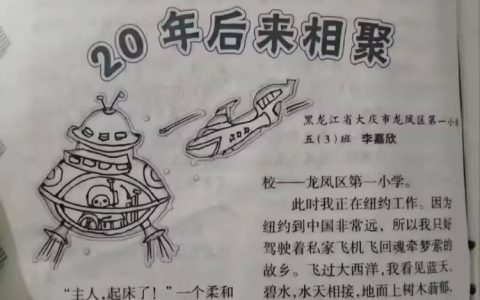 20年后来相聚
黑龙江省大庆市龙凤区第一小学
五(3)班 李嘉欣
“主人,起床了!”一个柔和
校——龙凤区第一小学。
此时我正在纽约工作。因为
纽约到中国非常远,所以我只好
驾驶着私家飞机飞回魂牵梦萦的
故乡。飞过大西洋,我看见蓝天、
碧水,水天相接,地面上树木蓊郁、